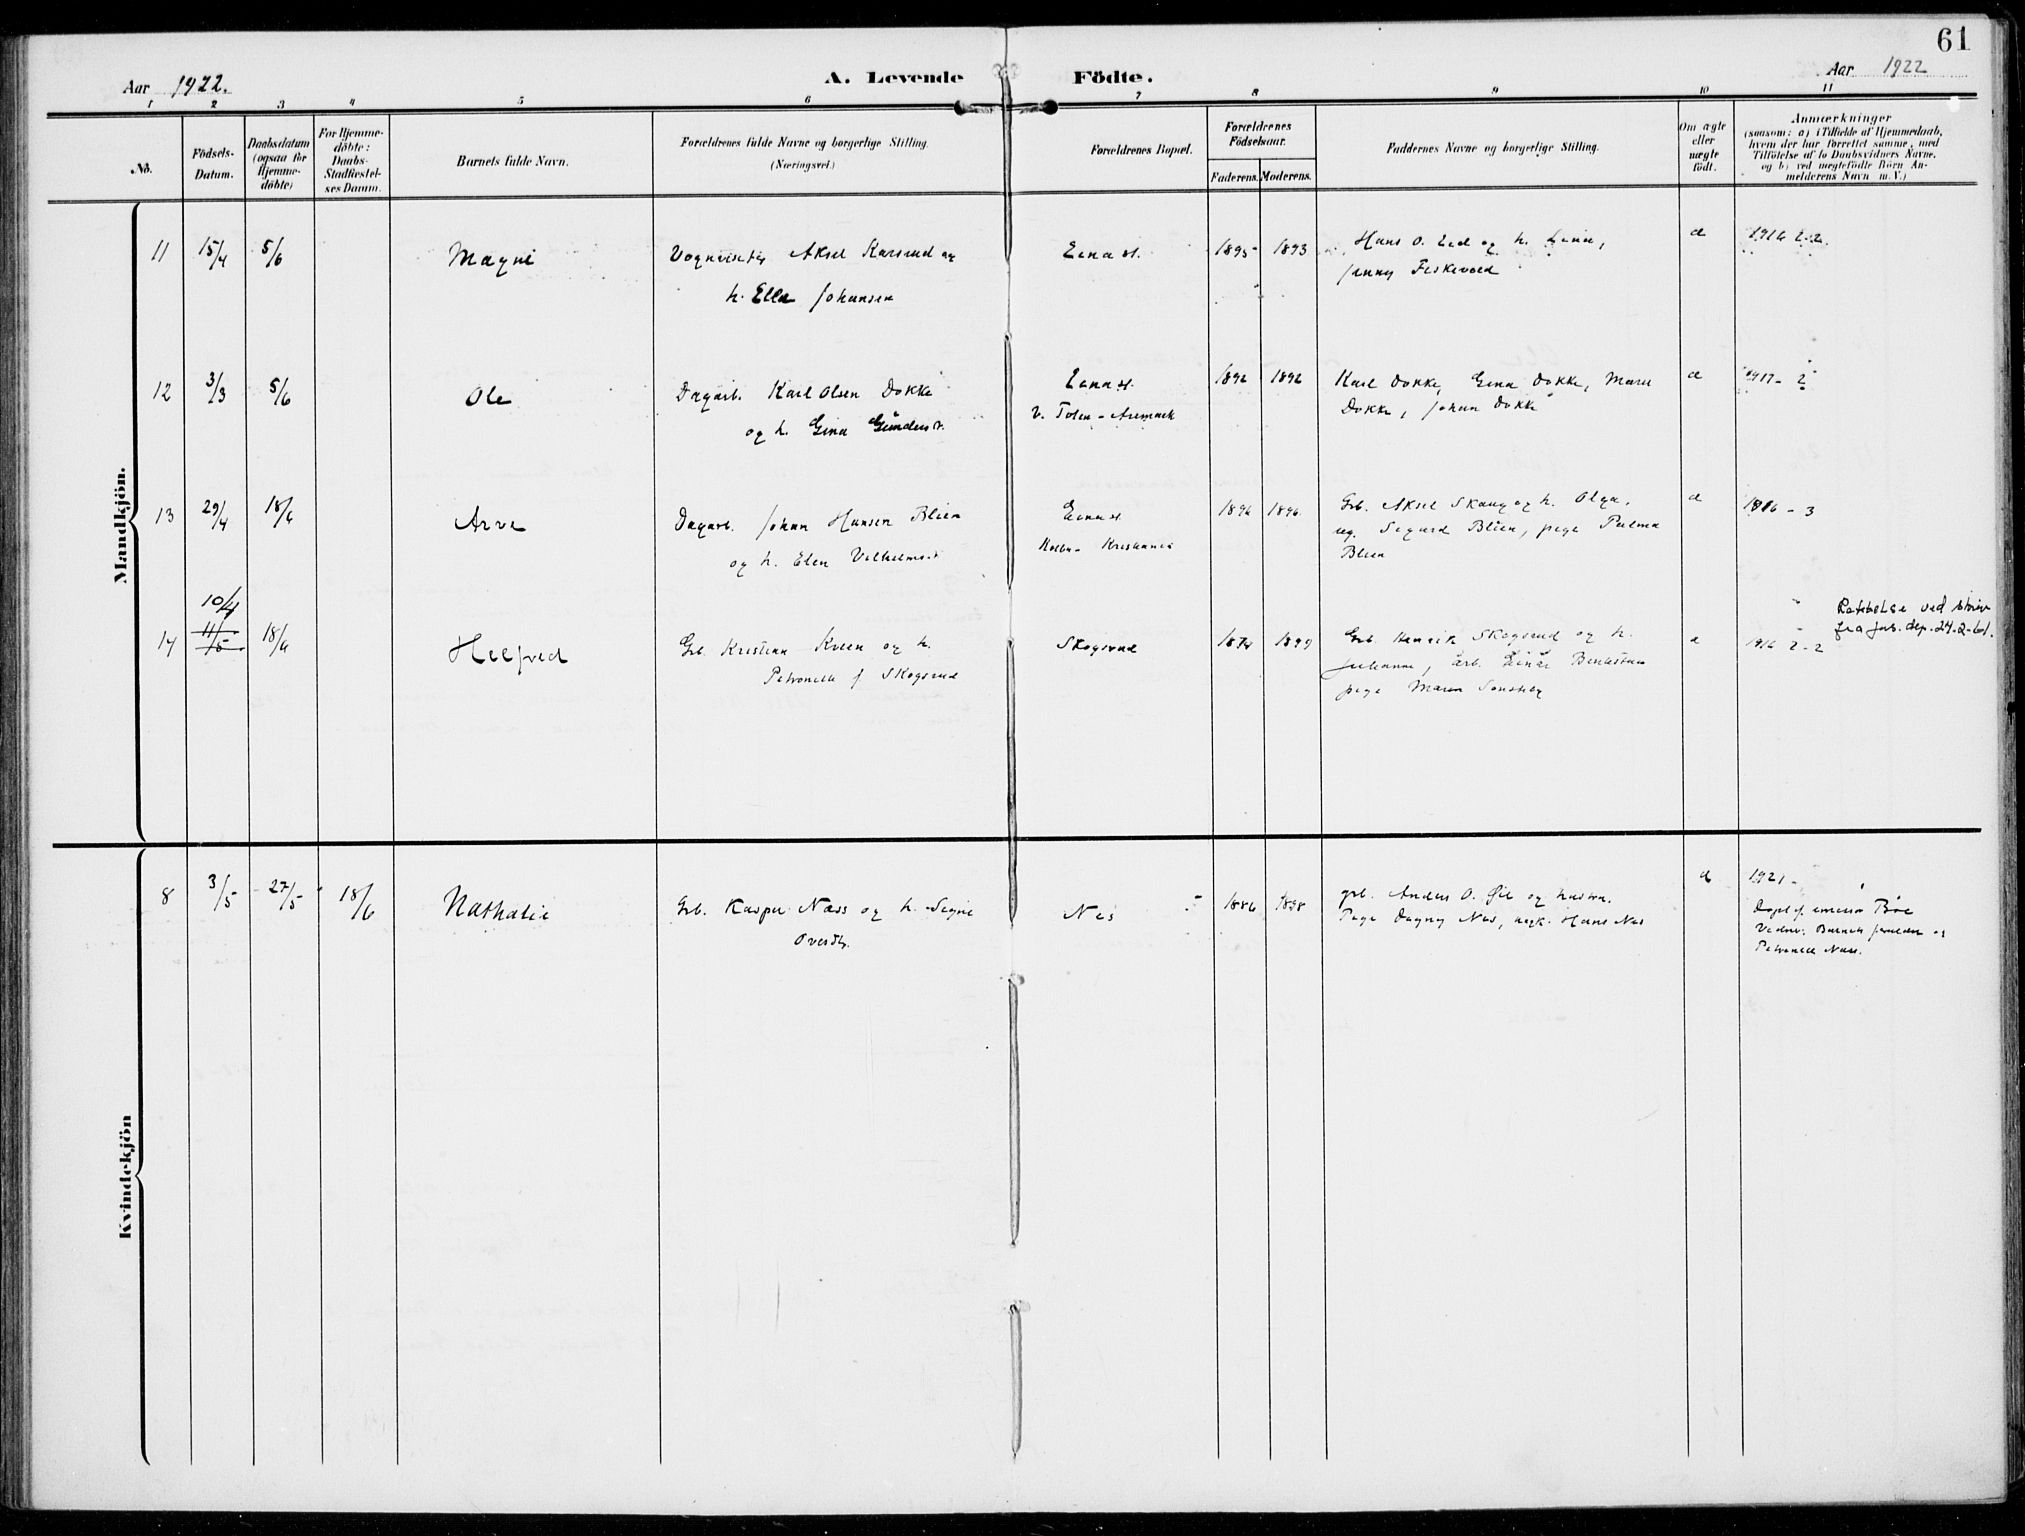 61
Aar 1922.
A. Levende Födte.
Aar 1922
1 2 3 4 5 6 7 8 9 10 11
No.
Födsels-
Datum.
Daabsdatum
(ogsaa for
Hjemme-
döbte)
For Hjemme-
döbte:
Daabs-
Stadfæstel-
ses Datum.
Barnets fulde Navn.
Forældrenes fulde Navne og borgerlige Stilling.
(Næringsvei.)
Forældrenes Bopæl.
Forældrenes
Födselsaar.
Faderens. Moderens.
Faddernes Navne og borgerlige Stilling.
Om ægte
eller
uægte
födt.
Anmærkninger
(saasom: a) i Tilfælde af Hjemmedaab,
hvem der har forrettet samme, med
Tilföielse af to Daabsvidners Navne,
og b) ved uægtefödte Börn An-
melderens Navn m. V.)
Mandkjön.
11 15/4 5/6 Magne
Aksel Karsrud og
h. Ella Johansen
Eina st.
1895 1893
Hans O. Lid og h. Lina,
Jenny Fiskevold
1916 2-2.
12 3/3 5/6 Ole
Dagarb. Karl Olsen Dokke
og h. Gina Gundersd.
Eina st.
V. Toten - Aremark
1892 1892
Karl Dokke, Gina Dokke, Maren
Dokke, Johan Dokke
1917 - 2
13 29/4 18/6 Arve
Dagarb. Johan Hansen Blien
og h. Elen Vilhelmsd.
Eina st.
Kolbu - Kristiania
1896 1896
Grb. Aksel Skaug og h. Olga,
ug. Sigurd Blien, pige Palma
Blien
1916 - 3
14 10/4 11/5 18/6 Helfred
Grb. Kristian Kveen og h.
Petronelle f. Skogsrud
Skogsrud
1874 1899
Grb. Henrik Skogsrud og h.
Julianne, arb. Einar
pige Maren Sønsteby
1916 2-2
Rettelse ved skriv
fra Jus. dep. 24-2-61.
Kvindekjön
8 3/5 27/5 18/6 Nathalie
Grb. Kasper Næss og h. Signe
Nes
1886 1898
grb. Anders O. Øie og hustru.
Pige Dagny Nes, ungk. Hans Nes
1921 -
Døpt af Bøe
Vidner: Barnets forældre og
Petronelle Næss.